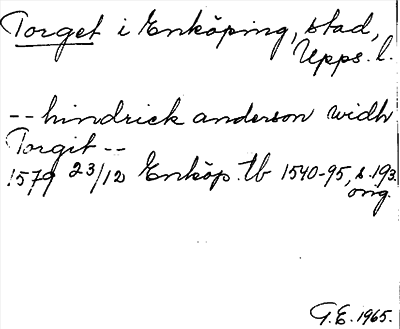 Torget i Enköping, stad,
Upps. l.
-- hindrick anderson widh
Torgit --
1579 23/12 Enköp. tb 1540-95, s. 193.
orig.
G.E. 1965.